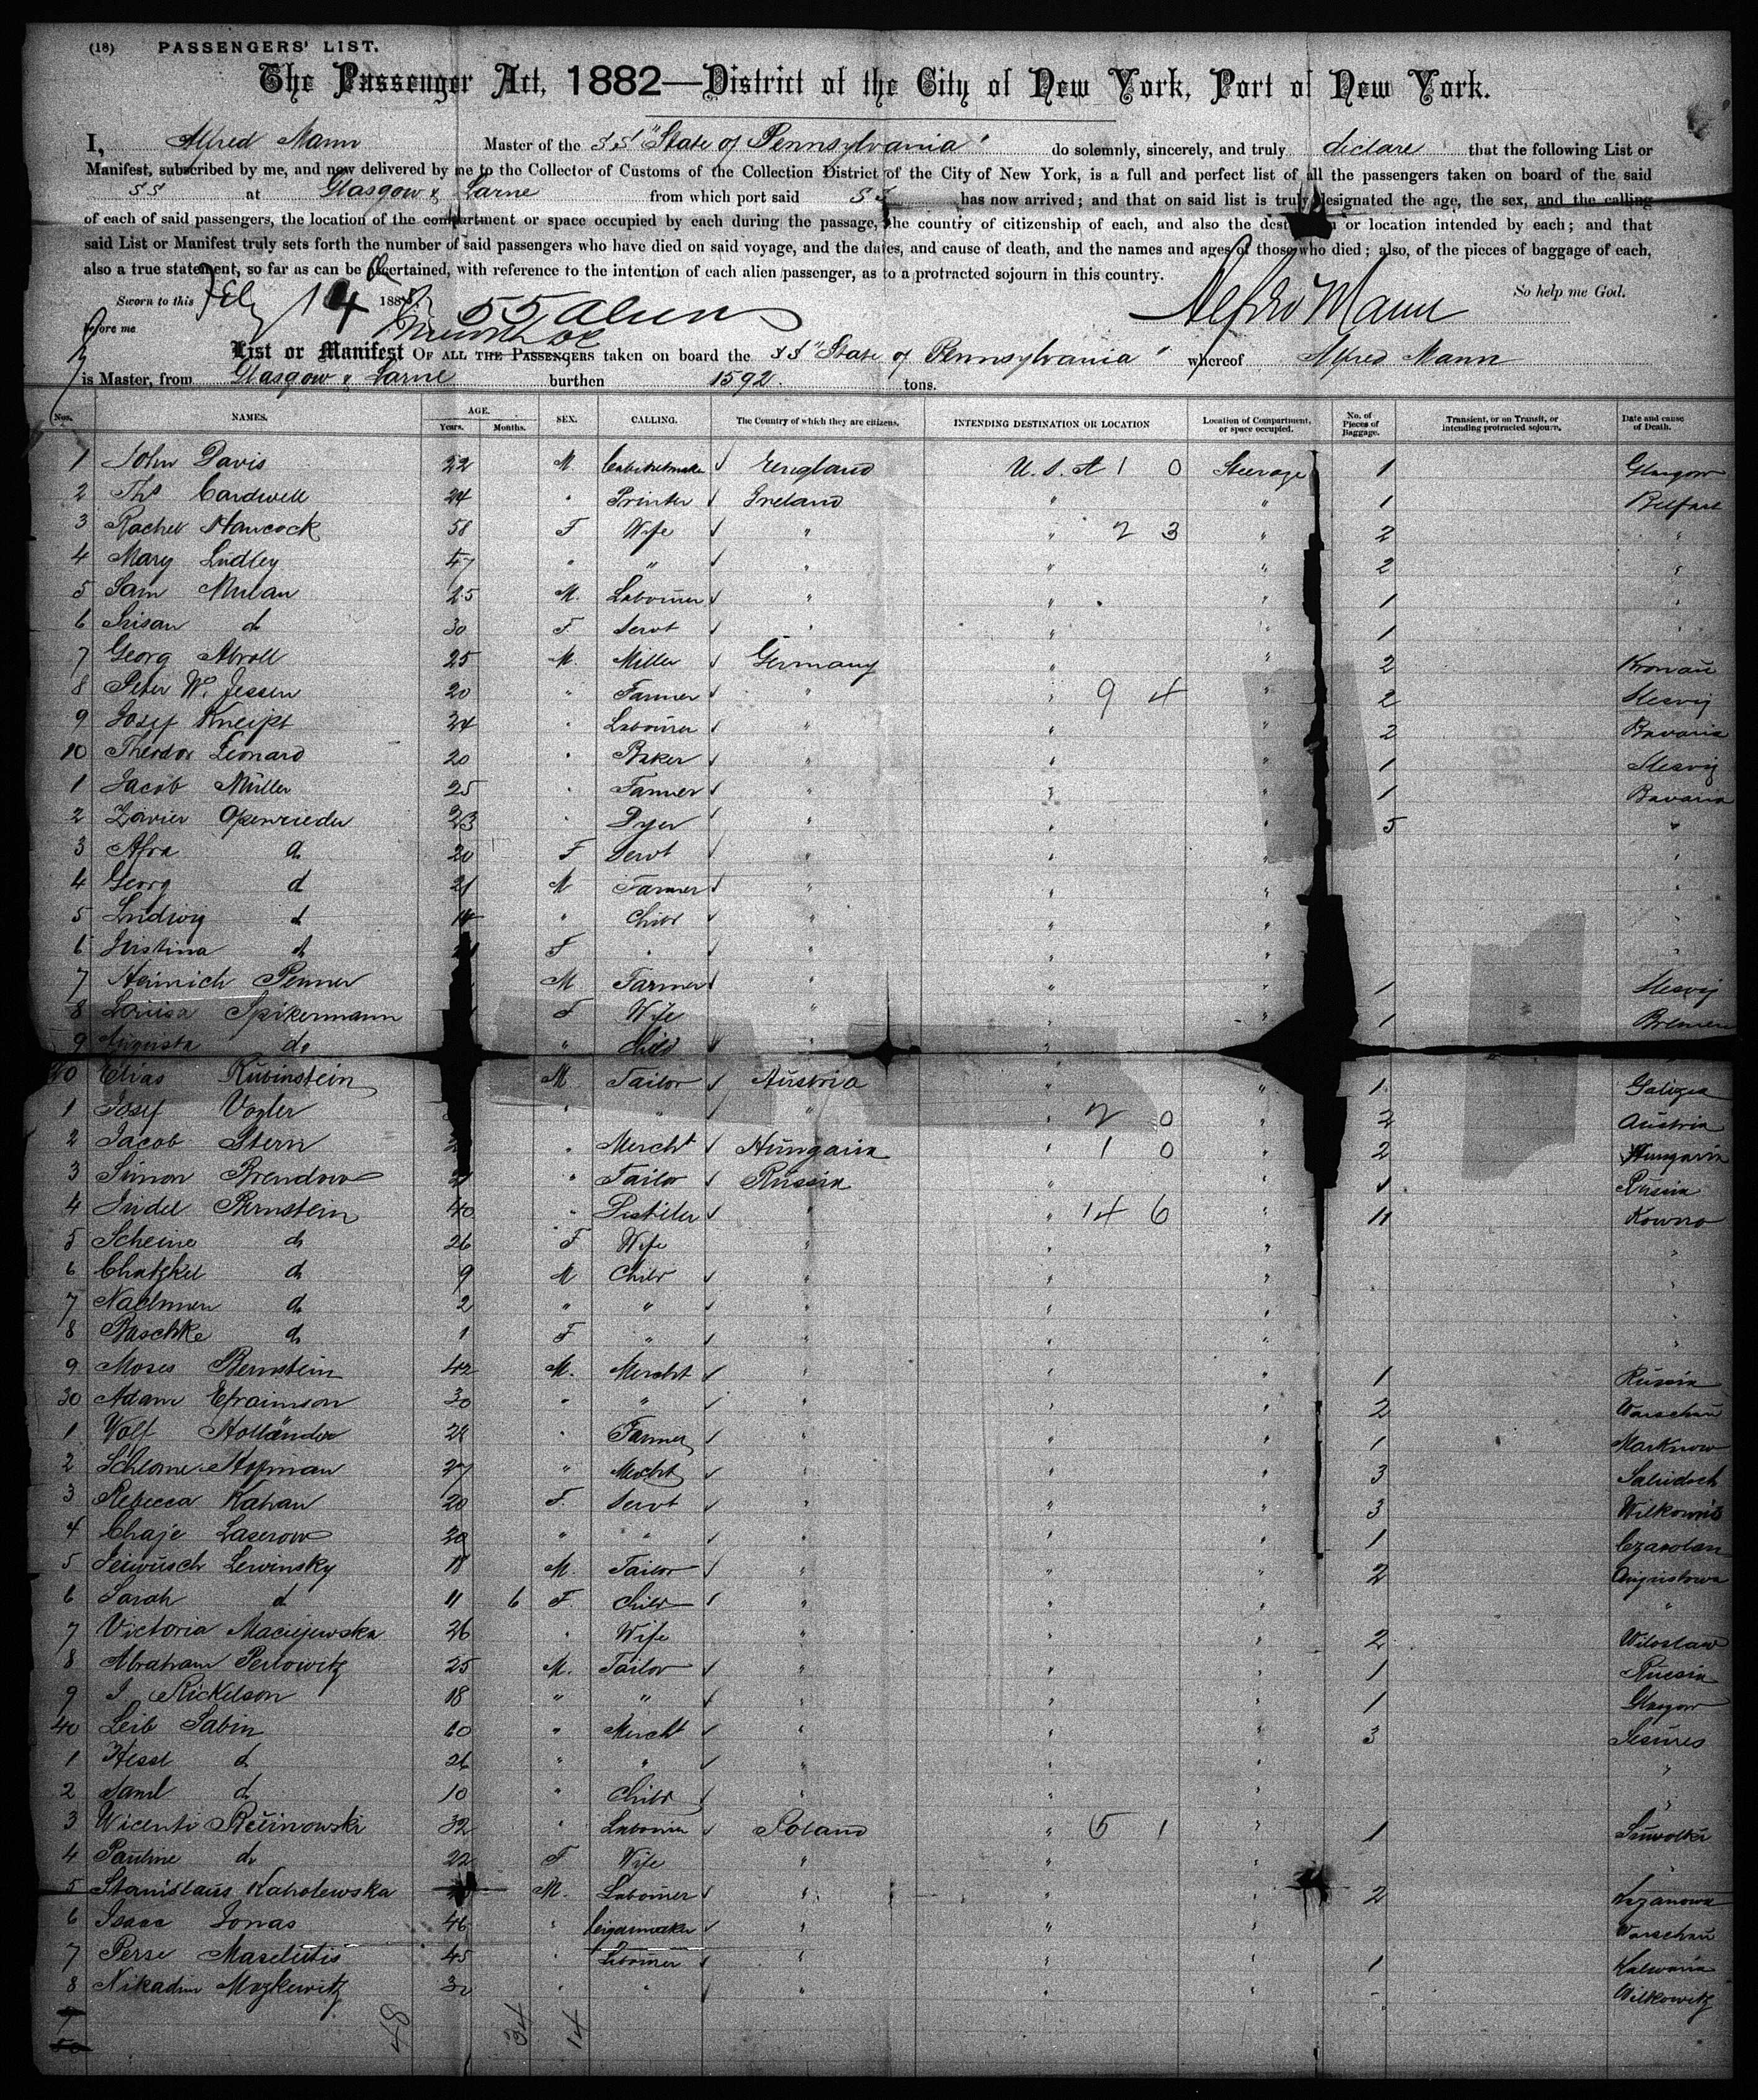 (18) PASSENGERS' LIST.
The Passenger Act, 1882—District of the City of New York, Port of New York.
I, Alfred Mann Master of the SS "State of Pennsylvania" do solemnly, sincerely, and truly declare that the following List or
Manifest, subscribed by me, and now delivered by me to the Collector of Customs of the Collection District of the City of New York, is a full and perfect list of all the passengers taken on board of the said
SS at Glasgow & Larne from which port said SS has now arrived; and that on said list is truly designated the age, the sex, and the calling
of each of said passengers, the location of the compartment or space occupied by each during the passage, the country of citizenship of each, and also the or location intended by each; and that
said List or Manifest truly sets forth the number of said passengers who have died on said voyage, and the dates, and cause of death, and the names and ages of those who died; also, of the pieces of baggage of each,
also a true statement, so far as can be ascertained, with reference to the intention of each alien passenger, as to a protracted sojourn in this country.
So help me God.
Sworn to this Feby 14 188 55 Aliens Alfred Mann
before me
List or Manifest OF ALL THE PASSENGERS taken on board the SS "State of Pennsylvania" whereof Alfred Mann
is Master, from Glasgow & Larne burthen 1592 tons.
Nos. NAMES. AGE. Years. Months. SEX. CALLING. The Country of which they are citizens. INTENDING DESTINATION OR LOCATION Location of Compartment, or space occupied. No. of Pieces of Baggage. Transient, or on Transit, or intending protracted sojourn. Date and cause of Death.
1 John Davis 22 M. Cabinetmaker England U.S.A 1 0 Steerage 1 Glasgow
2 Thos Cardwell 24 " Printer Ireland " " 1 Belfast
3 Rachel Hancock 58 F Wife " " 2 3 " 2 "
4 Mary Ludley 47 " " " " " 2 "
5 Sam Mulan 25 M. Labourer " " " 1 "
6 Susan do 30 F. Servt " " " 1 "
7 Georg Abroll 25 M. Miller Germany " " 2 Kronau
8 Peter W. Jessen 20 " Farmer " " 9 4 " 2 Slesvig
9 Josef Kneipt 24 " Labourer " " " 2 Bavaria
10 Theodor Leonard 20 " Baker " " " 1 Slesvig
1 Jacob Müller 25 " Farmer " " " 1 Bavaria
2 Xavier Openrieder 23 " Dyer " " " 5 "
3 Afra do 20 F Servt " " " "
4 Georg do 21 M Farmer " " " "
5 Ludwig do 14 " Child " " " "
6 Kristina do F " " " " "
7 Heinrich Penner M Farmer " " " 1 Slesvig
8 Louisa Spikermann F Wife " " " 1 Bremen
9 Augusta do " Child " "
20 Elias Rubinstein M Tailor Austria " " 1 Galizia
1 Josef Vogler " " " " 2 0 " 2 Austria
2 Jacob Stern " Mercht Hungaria " 1 0 " 2 Hungaria
3 Simon Brendow " Tailor Russia " " 1 Russia
4 Judel Bernstein 40 " Distiler " " 14 6 " 11 Kowno
5 Scheine do 26 F Wife " " " "
6 Chatzkel do 9 M Child " " " "
7 Nachmen do 2 " " " " " "
8 Baschke do 1 F " " " " "
9 Moses Bernstein 42 M. Mercht " " " 1 Russia
30 Adam Efraimson 30 " " " " " 2 Warschau
1 Wolf Holländer 24 " Farmer " " " 1 Marknow
2 Schlome Hofman 27 " Mercht " " " 3
3 Rebecca Kahan 20 F. Servt " " " 3 Wilkowis
4 Chaje Laserow 20 " " " " " 1
5 Leiwusch Lewinsky 18 M. Tailor " " " 2 Augustowa
6 Sarah do 11 6 F. Child " " " "
7 Victoria Maciejewska 26 " Wife " " " 2 Wiloslaw
8 Abraham Perlowitz 25 M. Tailor " " " 1 Russia
9 I. Rickelson 18 " " " " " 1 Glasgow
40 Leib Sabin 60 " Mercht " " " 3
1 Hessel do 26 " " " " " "
2 Saml do 10 " Child " " " "
3 Wicenti 32 " Labourer Poland " 5 1 " 1 Suwolki
4 Pauline do 22 F Wife " " " "
5 Stanislaus Kaholewska M. Labourer " " " 2
6 Isaac Jonas 46 " Cigarmaker " " " Warschau
7 Perse Maselutis 45 " Labourer " " " 1 Kalwaria
8 Nikadim Mozkewitz 30 " " " " " - Wilkowitz
9
50
48 34 14